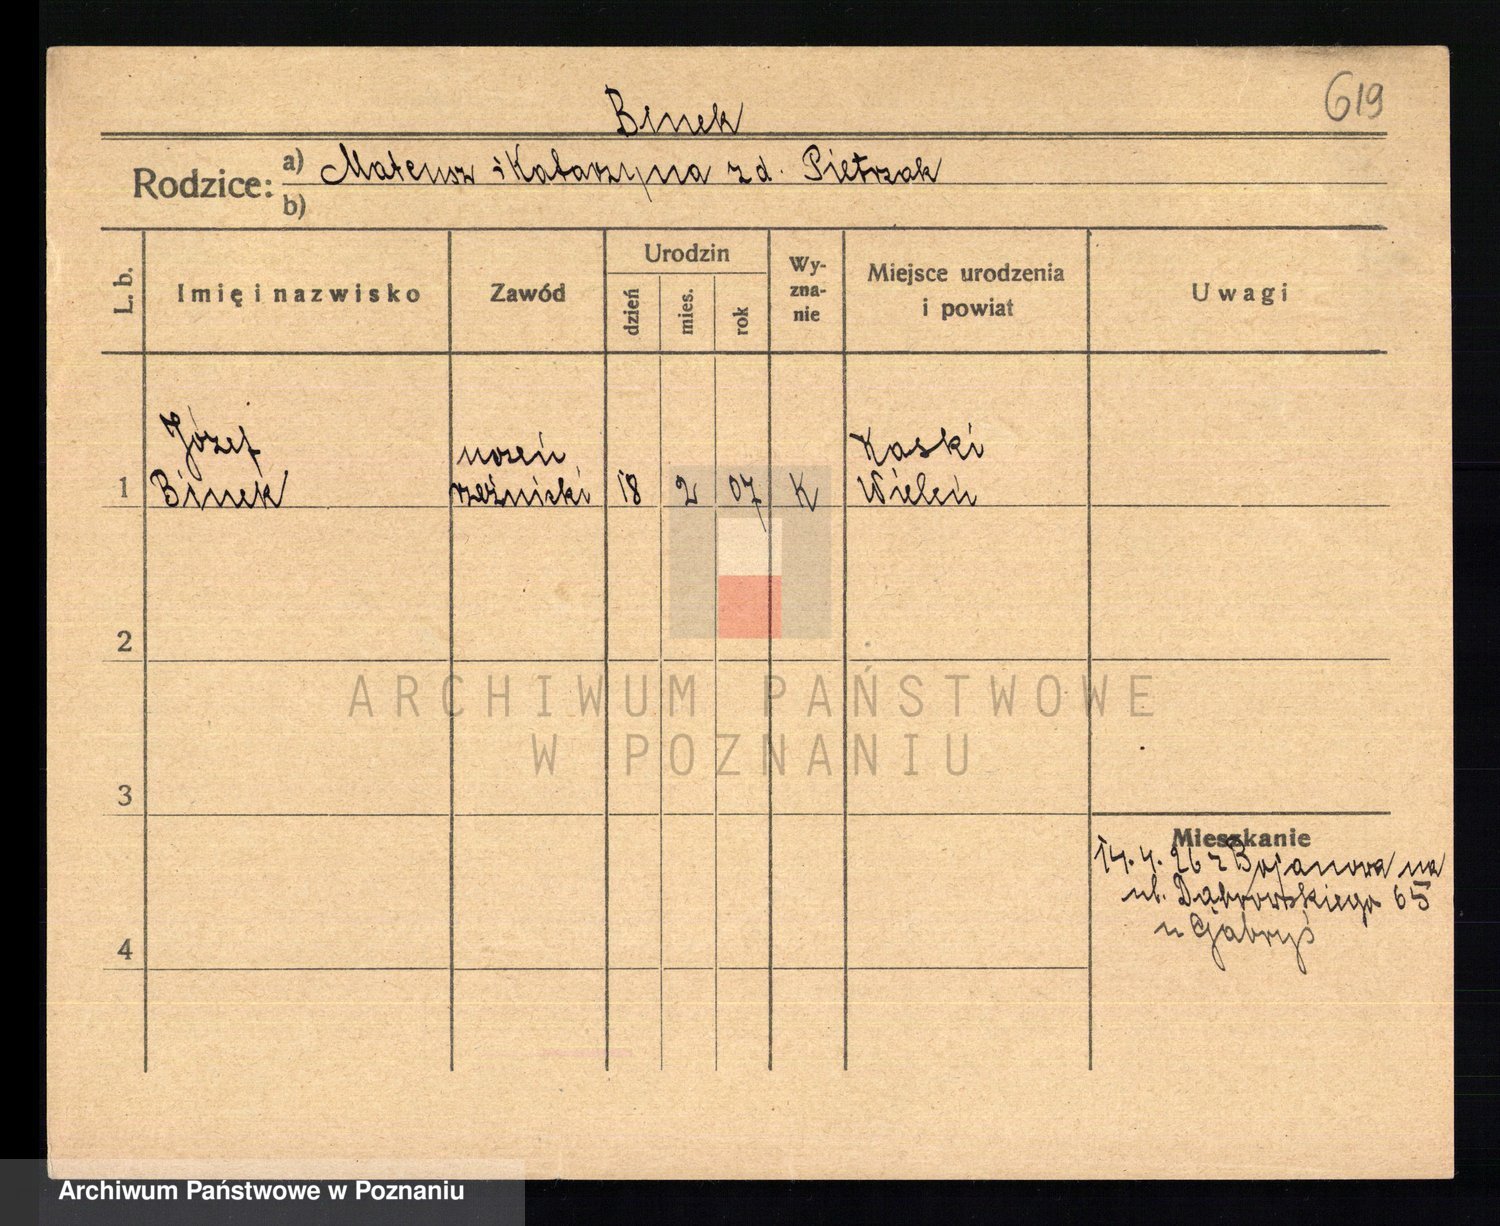 619
Binek
Rodzice: a) Mateusz i Katarzyna z d. Pietrzak
b)
L. b. Imię i nazwisko Zawód Urodzin dzień mies. rok Wy-zna-nie Miejsce urodzenia i powiat Uwagi
Józef uczeń Kaski
1 Binek rzeźnicki 18 2 07 K Wieleń
2
ARCHIWUM PAŃSTWOWE
W POZNANIU
3
Mieszkanie
14.4.26 z Bojanowa na
ul. Dąbrowskiego 65
u Gabryś
4
Archiwum Państwowe w Poznaniu